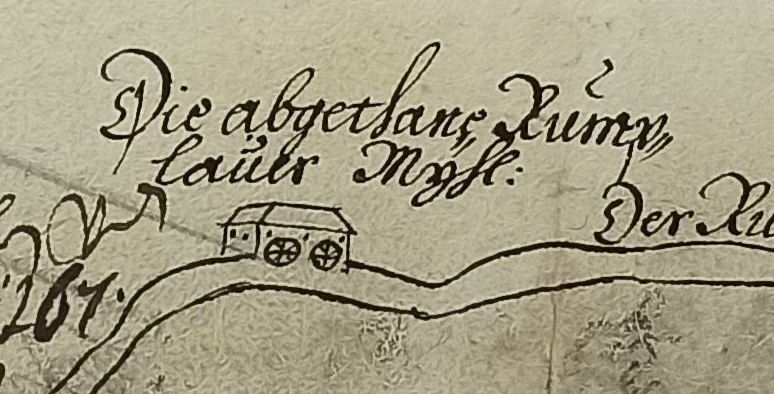 Die abgethane Rump„
lauer Mÿhl:
Der Ru
267.